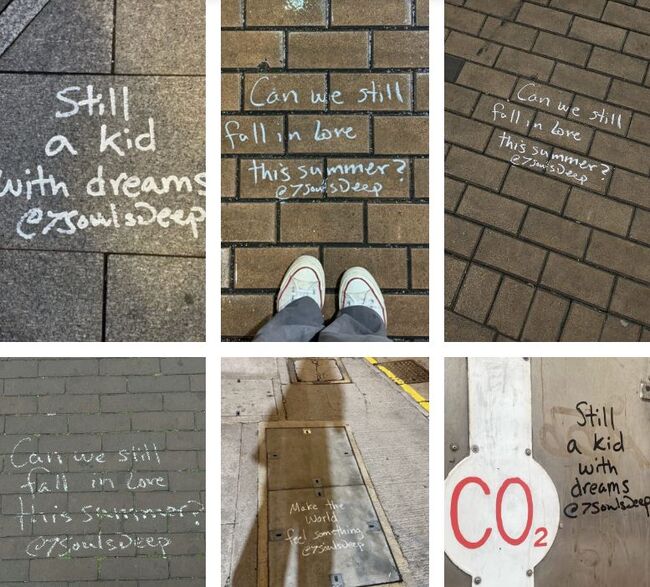 Still
a kid
with dreams
@7SoulsDeep
Can we still
fall in love
this summer?
@7SoulsDeep
Can we still
fall in love
this summer?
@7SoulsDeep
Can we still
fall in love
this summer?
@7SoulsDeep
Make the
World
feel something
@7SoulsDeep
CO2
Still
a kid
with
dreams
@7SoulsDeep